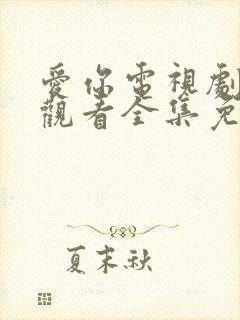 愛你電視劇
觀看全集免
夏末秋